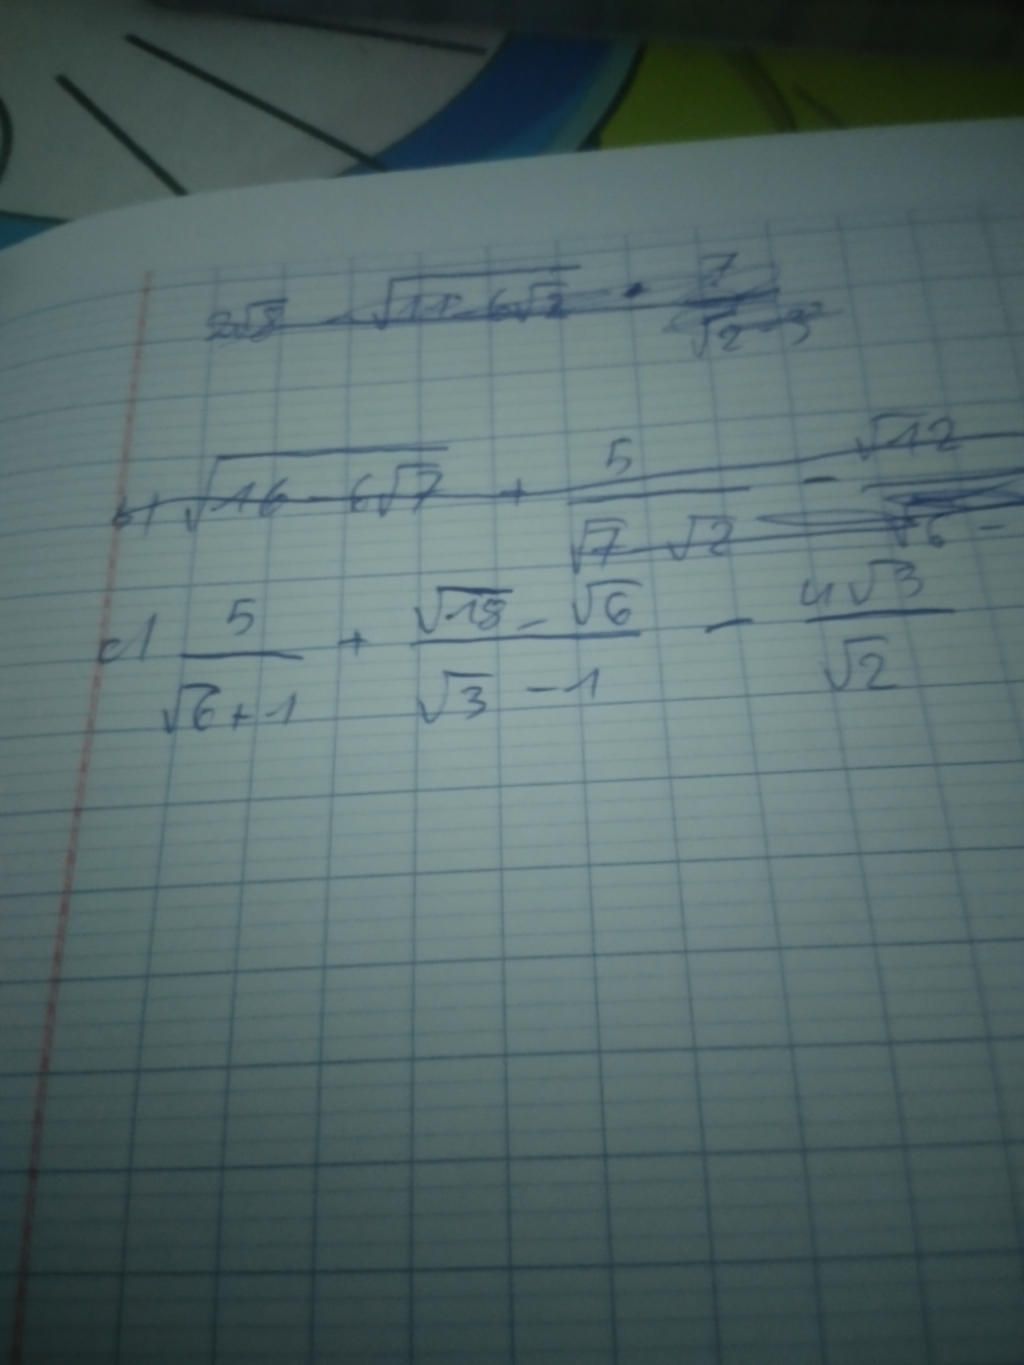 2√8 - √(11 - 6√2) · 7/(√2 - 3)
b) √(16 - 6√7) + 5/(√7 √2) - √12/(√6 -
c) 5/(√6 + 1) + (√18 - √6)/(√3 - 1) - 4√3/√2